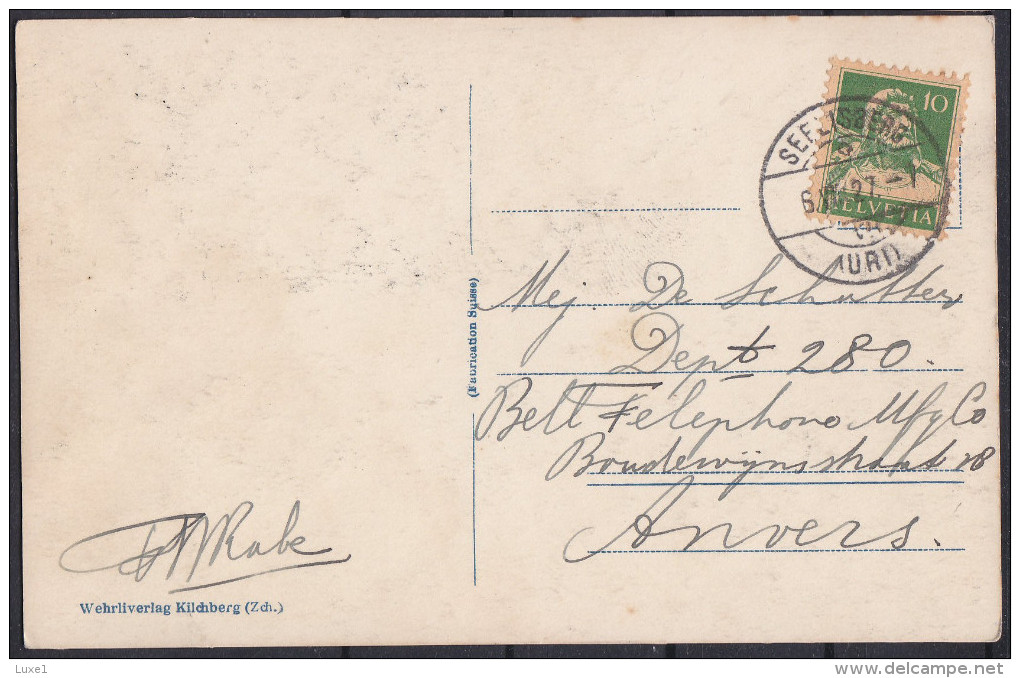 10
HELVETIA
SEELISBERG
(URI)
(Fabrication Suisse)
Mej. De Schutter
Dept 280.
Bell Telephone Mfg Co
Boudewynsstraat 18
Anvers.
Rabe
Wehrliverlag Kilchberg (Zch.)
Luxe1
delcampe.net